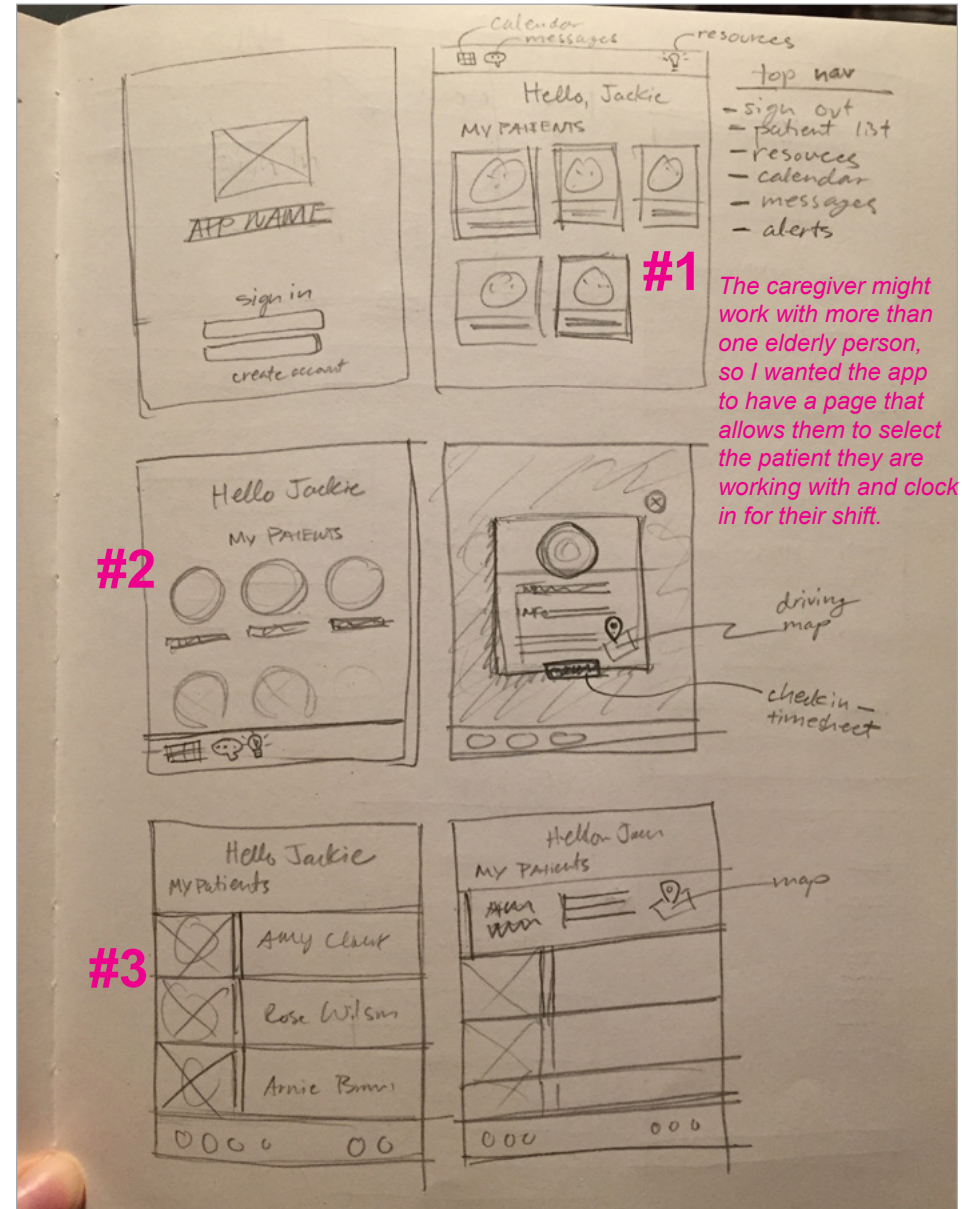 calendar
messages
resources
top nav
- sign out
- patient list
- resouces
- calendar
- messages
- alerts
APP NAME
sign in
create account
Hello, Jackie
MY PATIENTS
#1
The caregiver might
work with more than
one elderly person,
so I wanted the app
to have a page that
allows them to select
the patient they are
working with and clock
in for their shift.
#2
Hello Jackie
MY PATIENTS
INFO
driving
map
check in -
timesheet
#3
Hello Jackie
My Patients
Amy
Rose Wilson
Arnie
Hello
MY PATIENTS
map